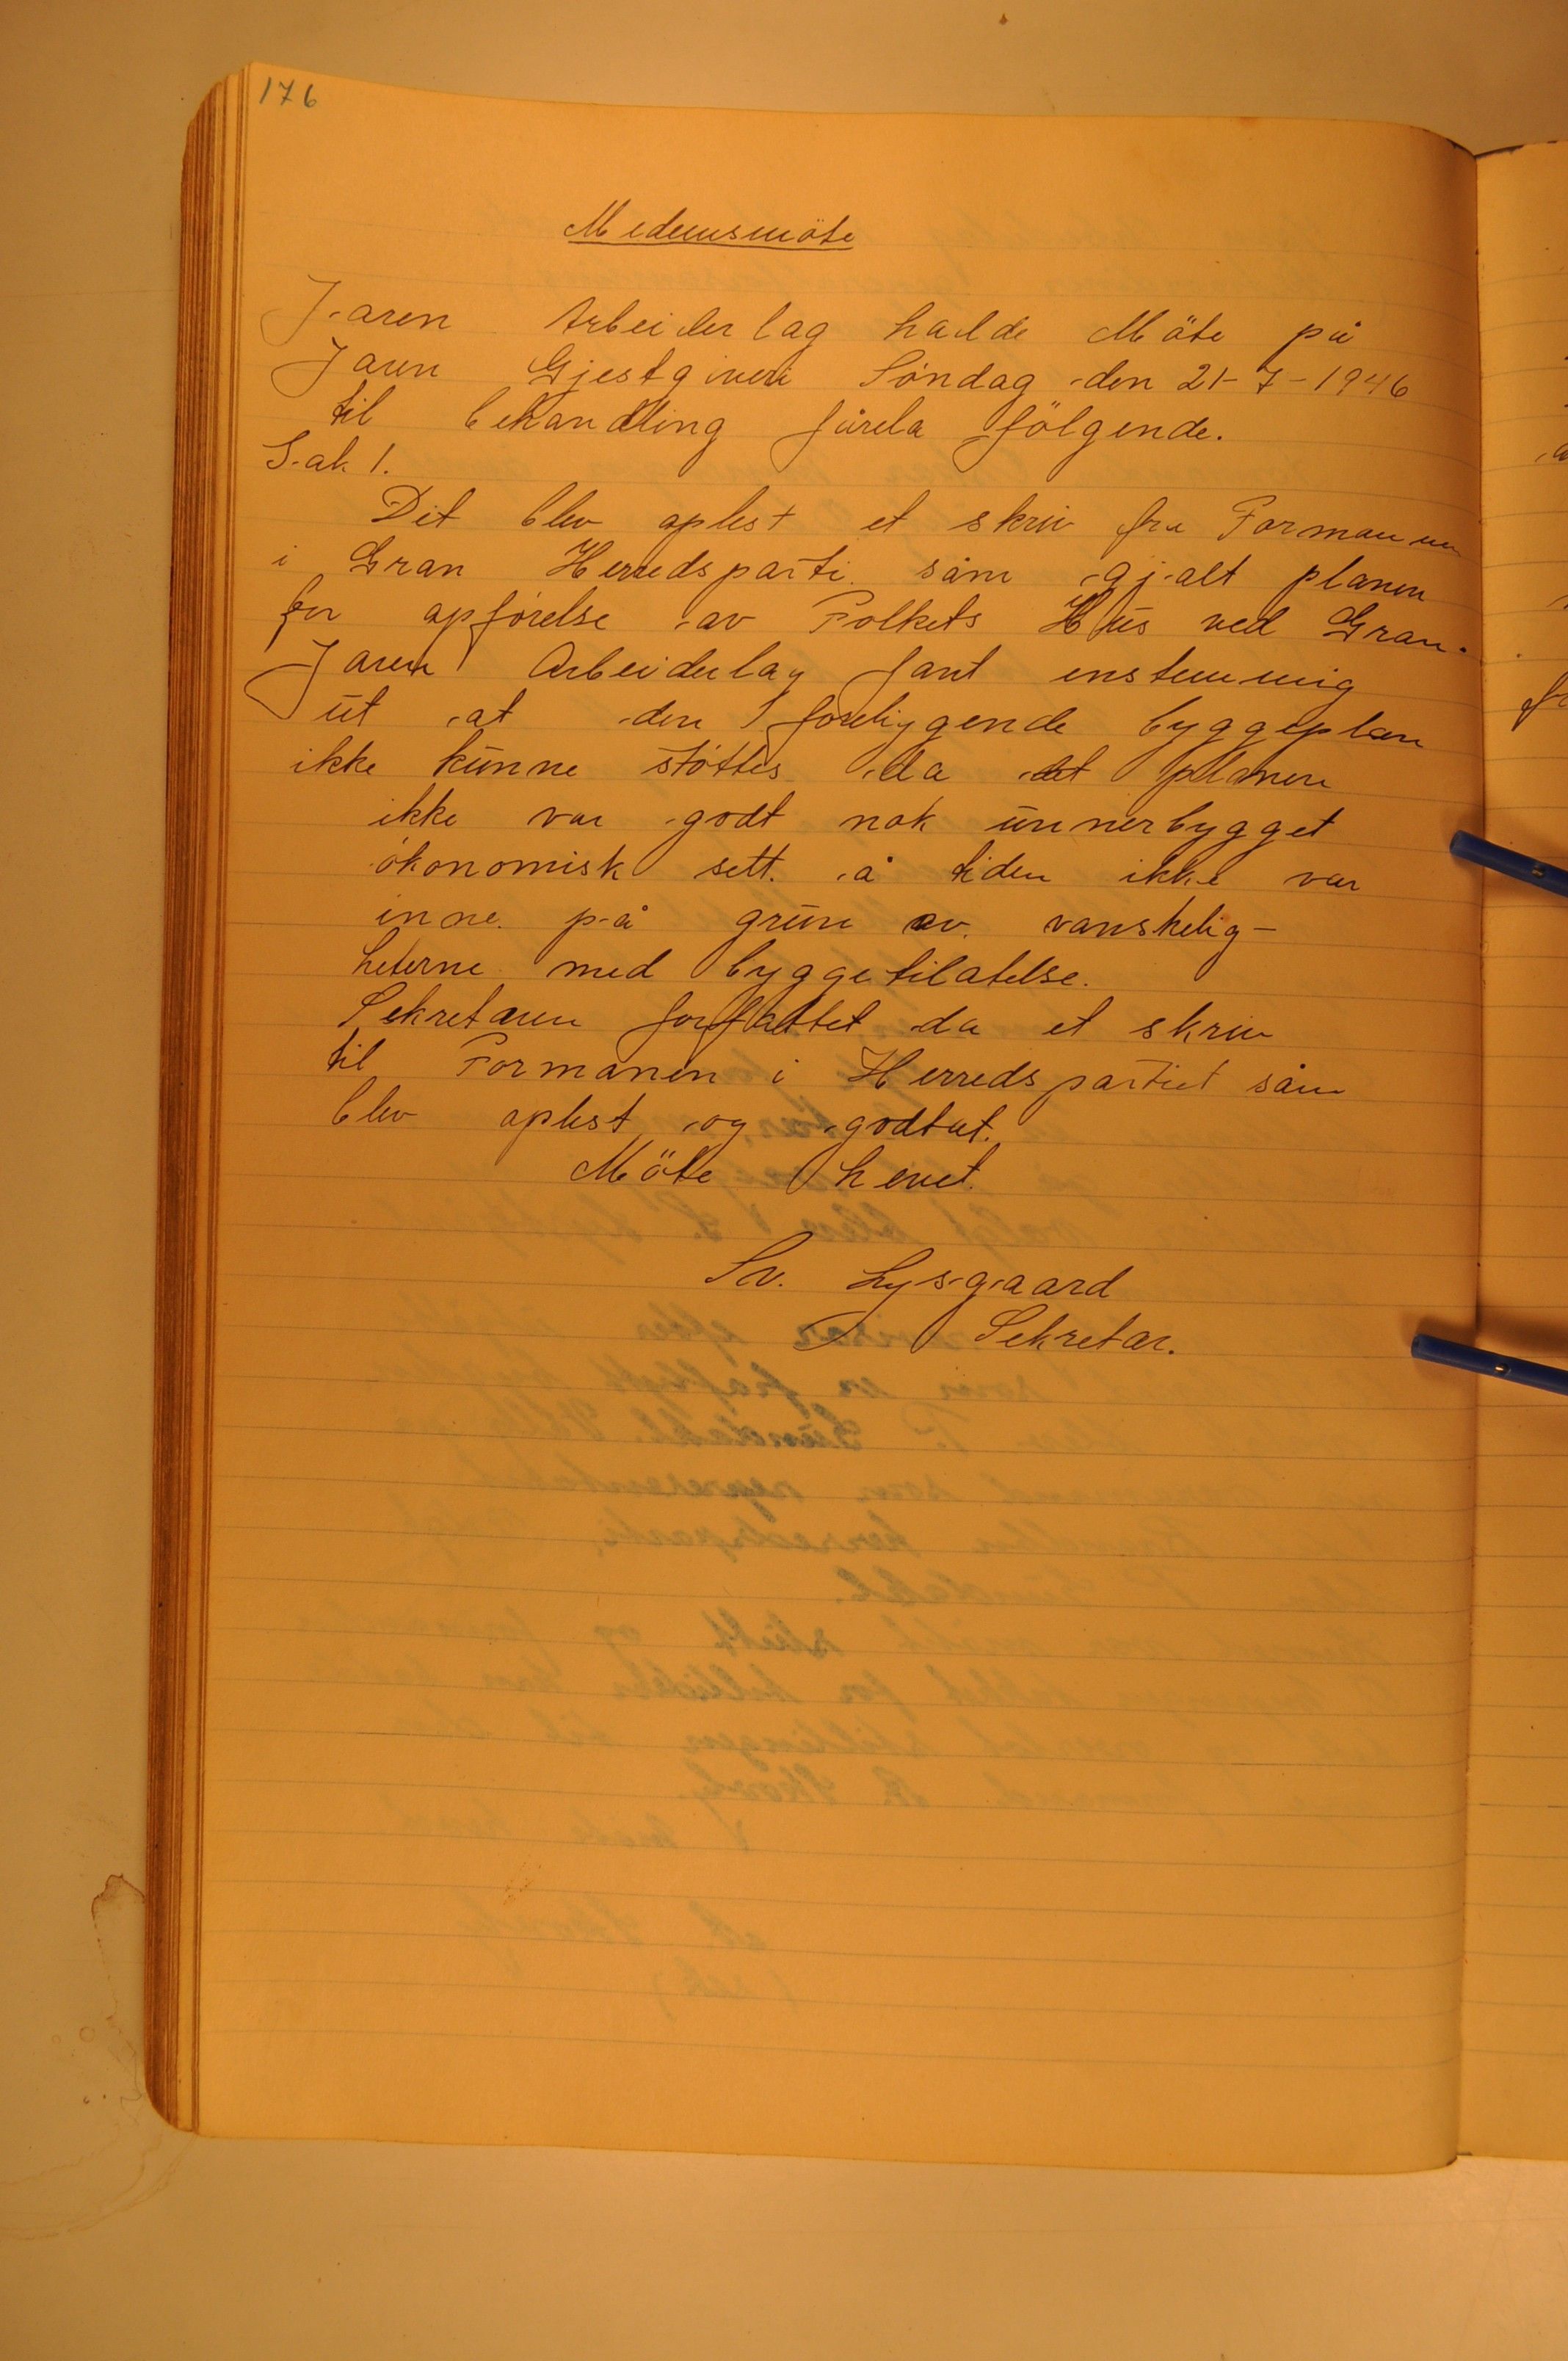 176
Medemsmöte
Jaren Arbeiderlag halde Möte på
Jaren Gjestgiveri Söndag den 21-7-1946
til behandling fårela fölgende.
Sak 1.
Det blev oplest et skriv fra Formannen
i Gran Herredsparti såm gjalt planen
for opförelse av Folkets Hus ved Gran.
Jaren Arbeiderlag fant enstemmig
ut at den foreliggende byggeplan
ikke kunne stöttes da det planen
ikke var godt nok unnerbygget
ökonomisk sett. å tiden ikke var
inne på grunn av vanskelig-
heterne med byggetilatelse.
Sekretæren forfattet da et skriv
til Formanen i Herredspartiet såm
blev oplest og godtat.
Möte hevet.
Sv. Lysgaard
Sekretær.